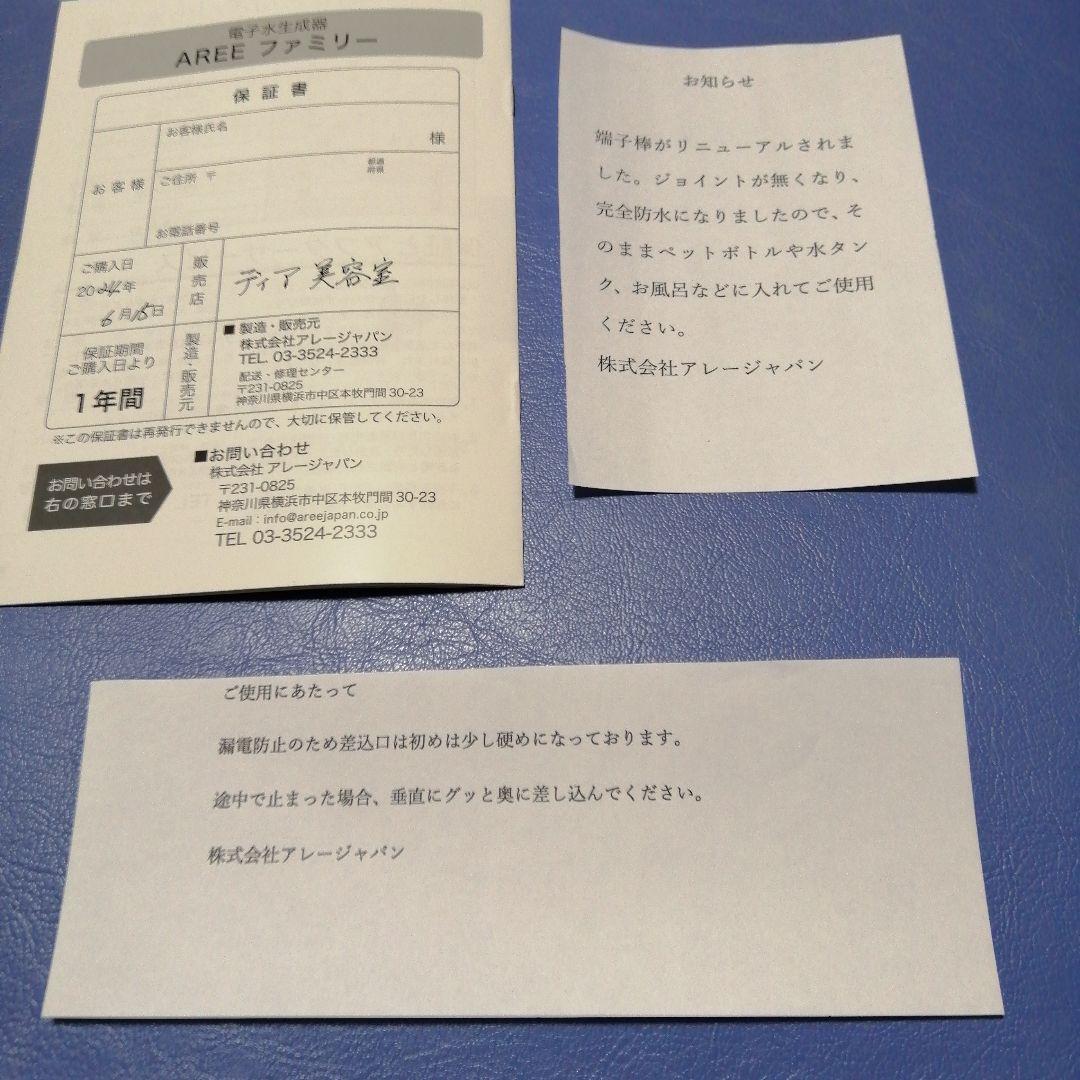 電子水生成器
AREE ファミリー
保証書
お客様
お客様氏名
様
ご住所 〒
都道
府県
お電話番号
ご購入日
2024年
6月15日
販売店
ディア美容室
保証期間
ご購入日より
1年間
製造・販売元
■製造・販売元
株式会社アレージャパン
TEL. 03-3524-2333
配送・修理センター
〒231-0825
神奈川県横浜市中区本牧門間30-23
※この保証書は再発行できませんので、大切に保管してください。
お問い合わせは
右の窓口まで
■お問い合わせ
株式会社 アレージャパン
〒231-0825
神奈川県横浜市中区本牧門間30-23
E-mail：info@areejapan.co.jp
TEL 03-3524-2333
お知らせ
端子棒がリニューアルされま
した。ジョイントが無くなり、
完全防水になりましたので、そ
のままペットボトルや水タン
ク、お風呂などに入れてご使用
ください。
株式会社アレージャパン
ご使用にあたって
漏電防止のため差込口は初めは少し硬めになっております。
途中で止まった場合、垂直にグッと奥に差し込んでください。
株式会社アレージャパン